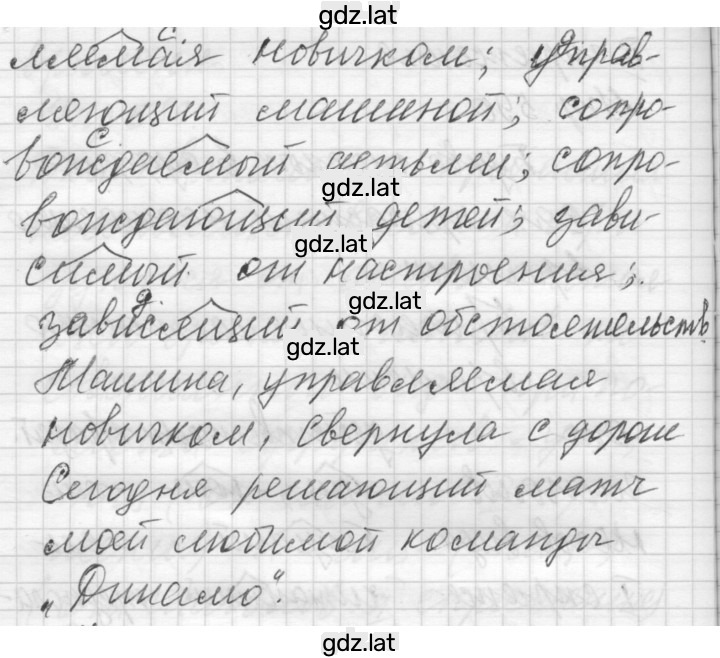 gdz.lat
с
ляемая новичком; управ-
ляющий машиной; сопро-
с
вождаемый детьми; сопро-
gdz.lat
вождающий детей; зави-
gdz.lat
симый от настроения;
д
gdz.lat
зависящий от обстоятельств
gdz.lat
Машина, управляемая
новичком, свернула с дороги
Сегодня решающий матч
моей любимой команды
„Динамо".
gdz.lat